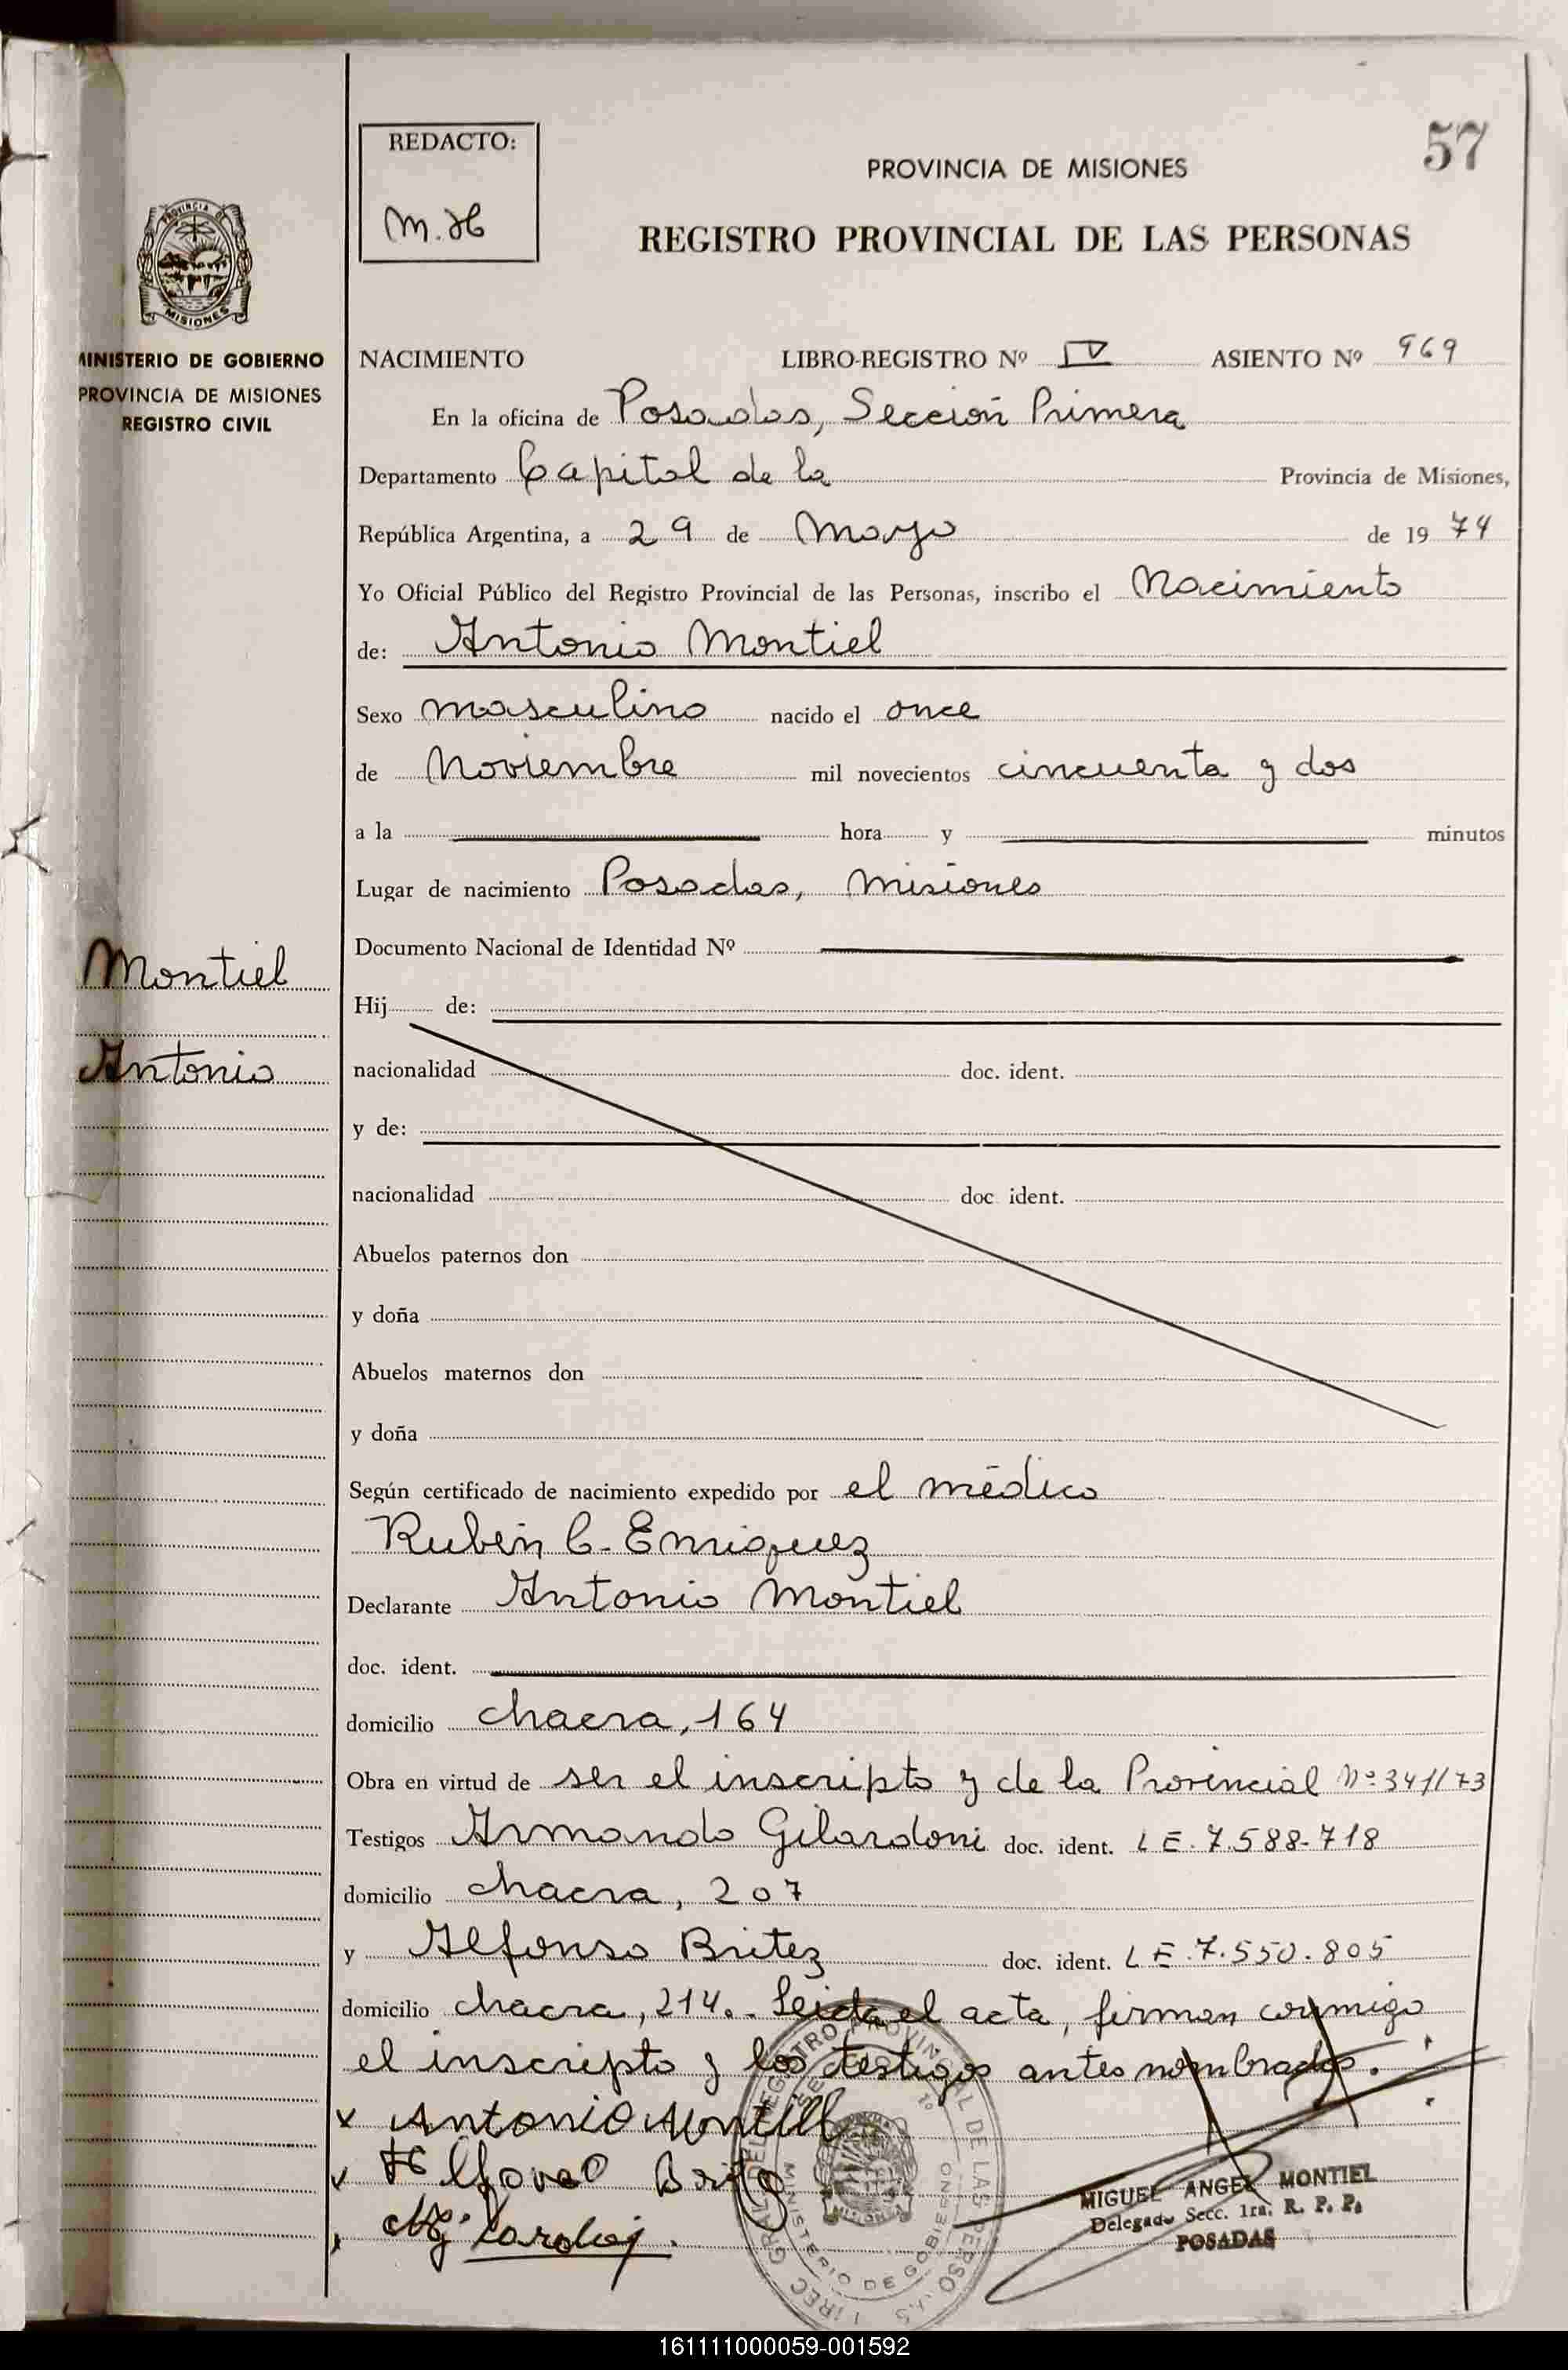 REDACTO:
M. H
57
PROVINCIA DE MISIONES
REGISTRO PROVINCIAL DE LAS PERSONAS
PROVINCIA DE
MISIONES
MINISTERIO DE GOBIERNO
PROVINCIA DE MISIONES
REGISTRO CIVIL
NACIMIENTO LIBRO-REGISTRO Nº IV ASIENTO Nº 969
En la oficina de Posadas, Sección Primera
Departamento Capital de la Provincia de Misiones,
República Argentina, a 29 de Mayo de 1974
Yo Oficial Público del Registro Provincial de las Personas, inscribo el Nacimiento
de: Antonio Montiel
Sexo masculino nacido el once
de Noviembre mil novecientos cincuenta y dos
a la hora y minutos
Lugar de nacimiento Posadas, Misiones
Montiel
Antonio
Documento Nacional de Identidad Nº
Hij de:
nacionalidad doc. ident.
y de:
nacionalidad doc ident.
Abuelos paternos don
y doña
Abuelos maternos don
y doña
Según certificado de nacimiento expedido por el médico
Rubén C. Enriquez
Declarante Antonio Montiel
doc. ident.
domicilio chacra, 164
Obra en virtud de ser el inscripto y de la Provincial Nº 341/73
Testigos Armando Gilardoni doc. ident. L E. 7.588-718
domicilio chacra, 207
y Alfonso Britez doc. ident. L E. 7.550.805
domicilio chacra, 214.- Leida el acta, firman conmigo
el inscripto y los testigos antes nombrados.
x Antonio Montiell
MIGUEL ANGEL MONTIEL
Delegado Secc. 1ra. R. P. P.
POSADAS
MINISTERIO DE GOBIERNO
161111000059-001592